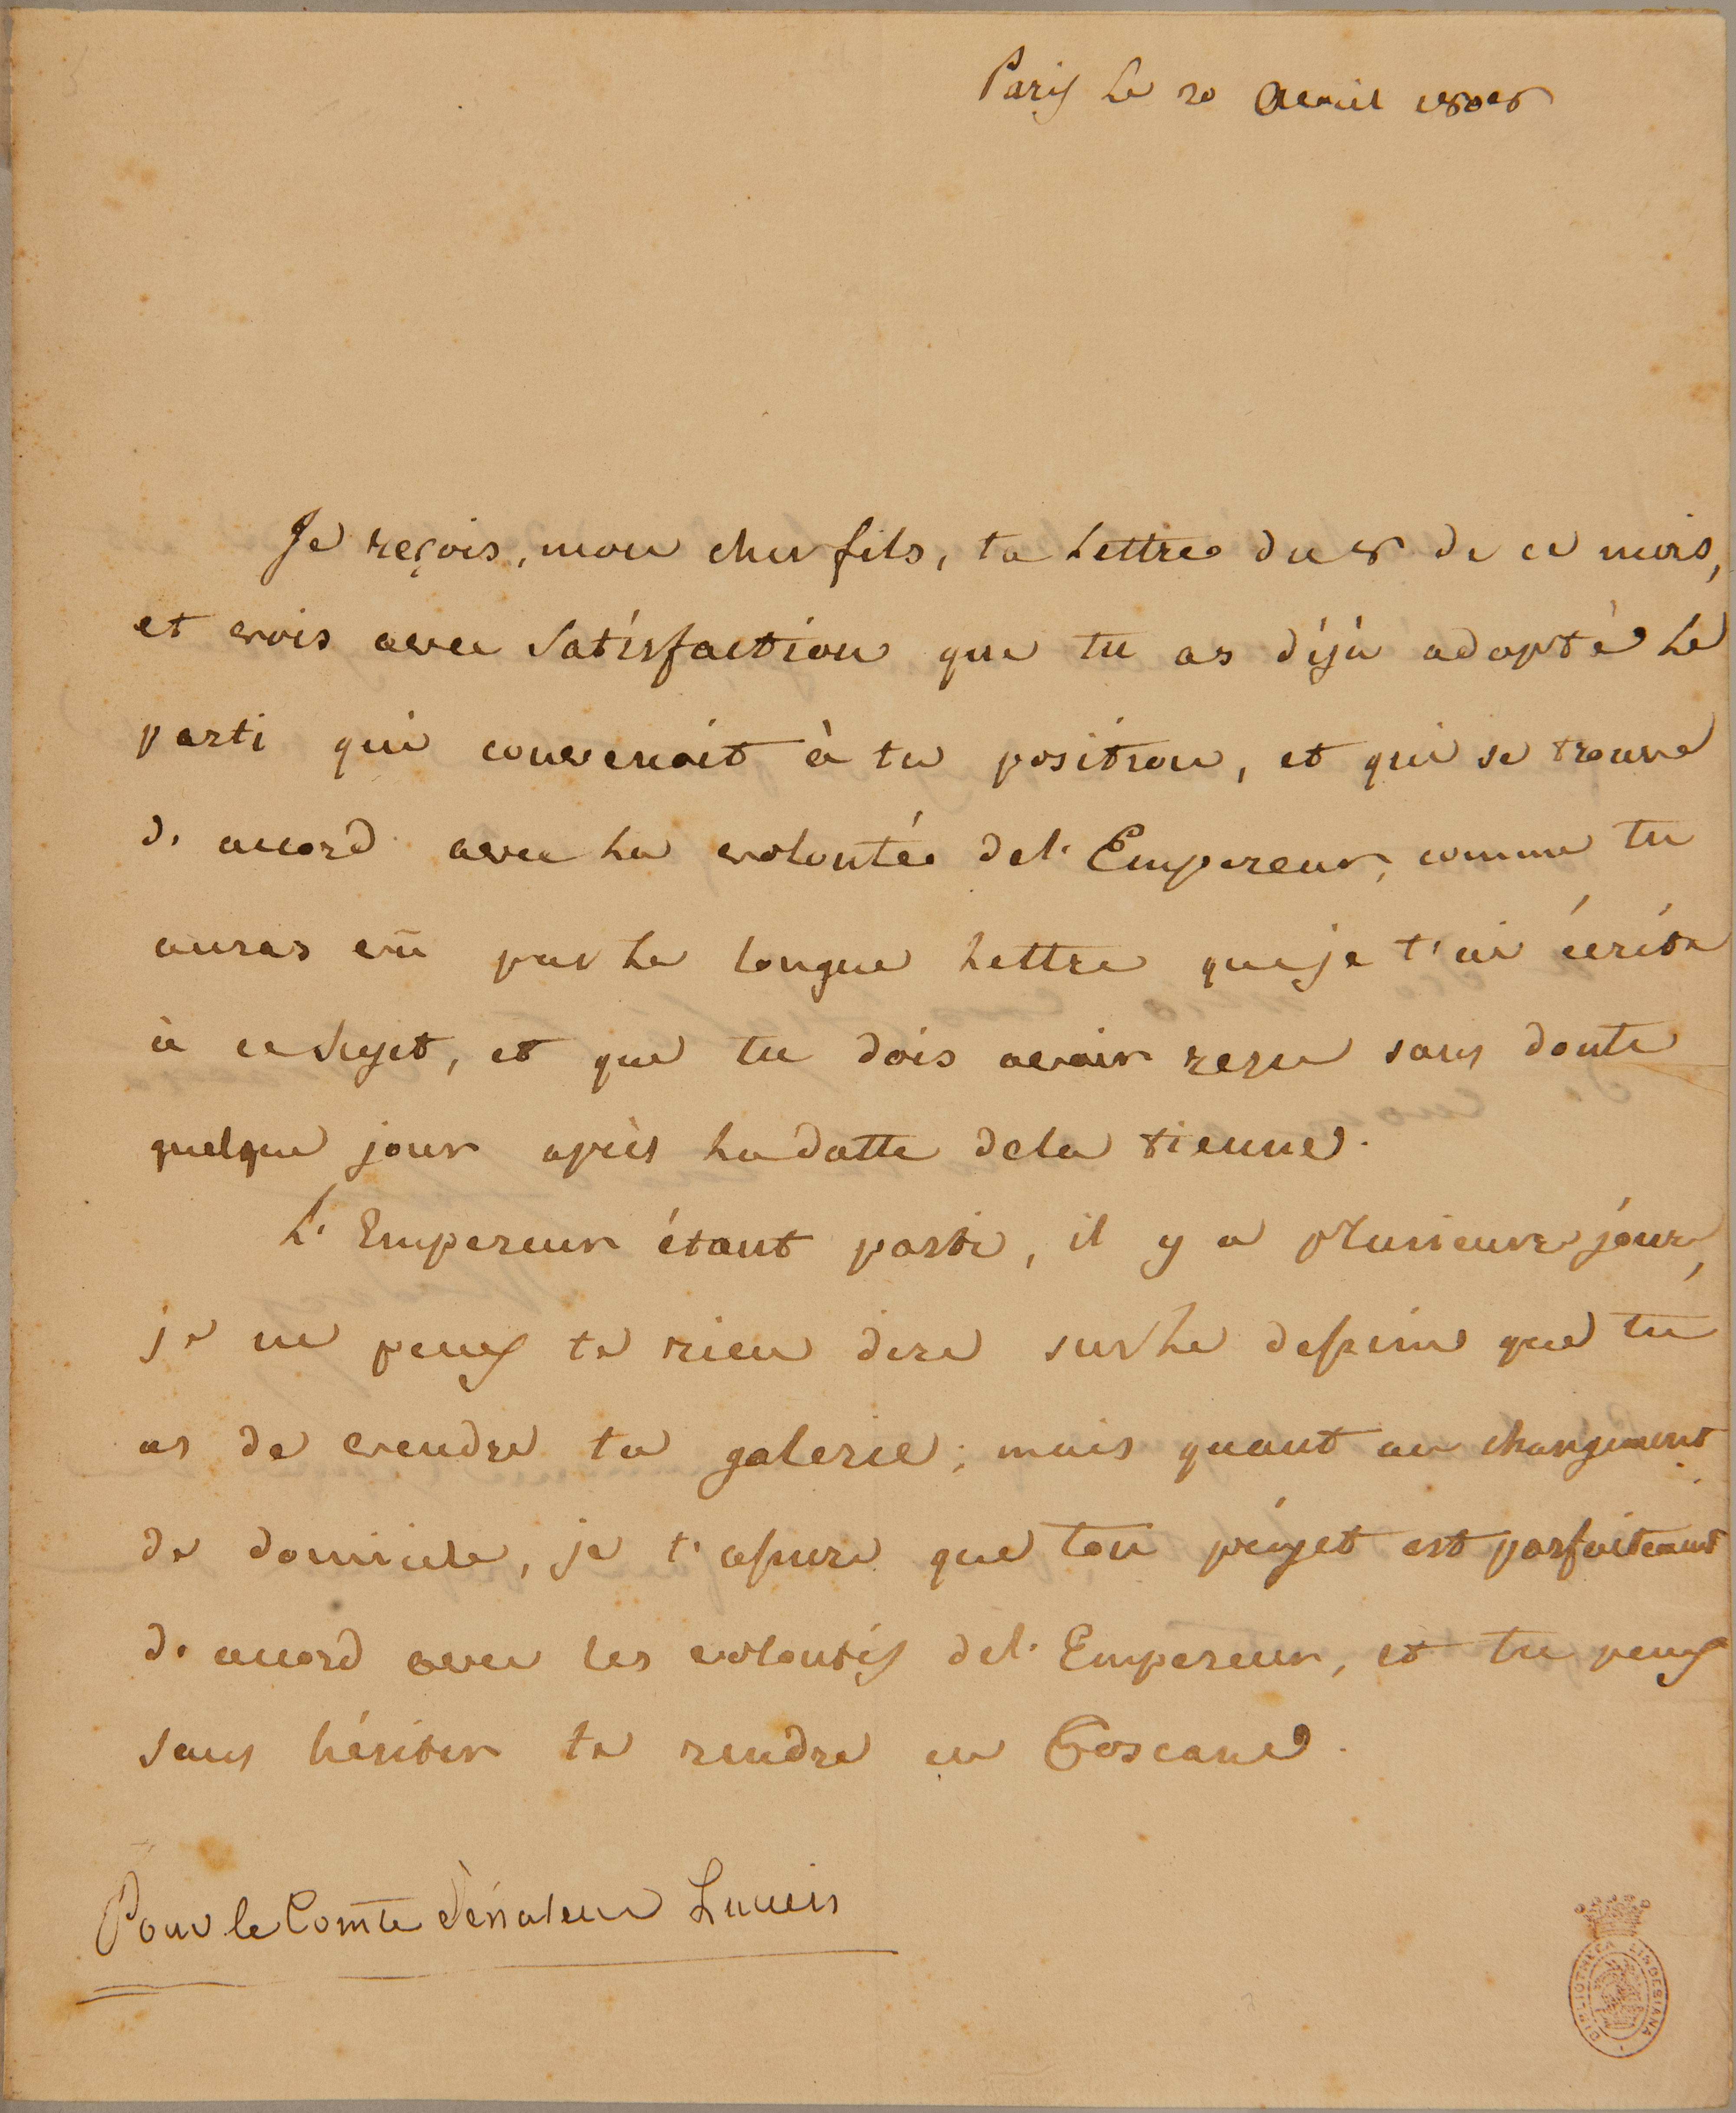 Paris le 20 Avril 1808
Je reçois, mon cher fils, ta Lettre du 8 de ce mois,
et vois avec Satisfaction que tu as déjà adopté le
parti qui convenoit à ta position, et qui se trouve
d'accord avec la volonté del'Empereur, comme tu
auras vû par la longue Lettre que je t'ai écrite
à ce Sujet, et que tu dois avoir reçu sans doute
quelque jour après la datte dela tienne.
L'Empereur étant parti, il y a plusieurs jours,
je ne peux te rien dire sur le dessein que tu
as de vendre ta galerie; mais quant au changement
de domicile, je t'assure que ton projet est parfaitement
d'accord avec les volontés del'Empereur, et tu peux
sans hésiter te rendre en Toscane.
Pour le Comte Sénateur Lucien
BIBLIOTHECA LINDESIANA